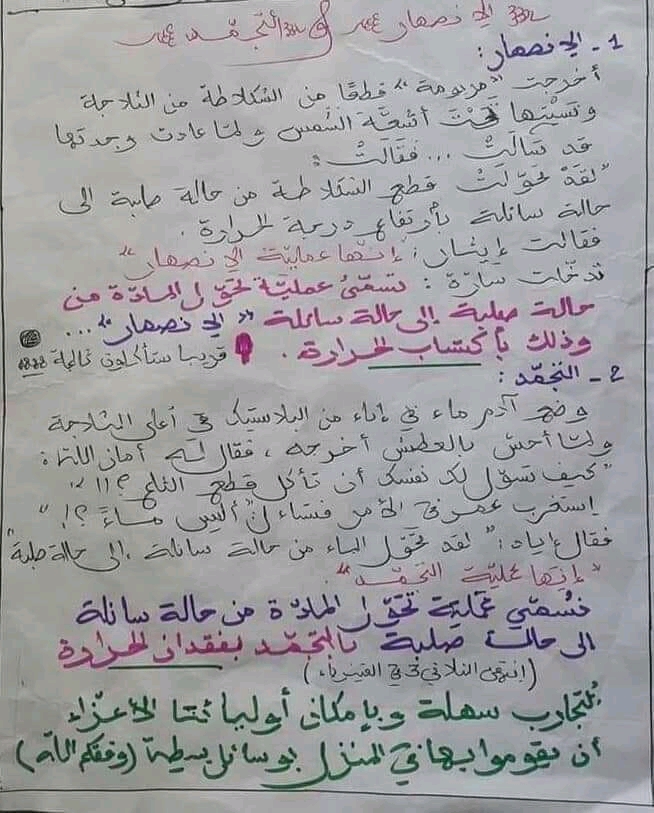 الإنصهار و التجمّد
1 - الإنصهار:
أخرجت "مريومة" قطعًا من الشكلاطة من الثلاجة
ونسيتها تحت أشعّة الشمس ولمّا عادت وجدتها
قد سالت ... فقالت:
"لقد تحوّلت قطع الشكلاطة من حالة صلبة إلى
حالة سائلة بارتفاع درجة الحرارة.
فقالت إيثار: "إنّها عمليّة الإنصهار"
تدخّلت سارّة: تسمّى عمليّة تحوّل المادّة من
حالة صلبة إلى حالة سائلة "الإنصهار"...
وذلك باكتساب الحرارة. قريبا ستأكلون
2 - التجمّد:
وضع آدم ماء في إناء من البلاستيك في أعلى الثلاجة
ولمّا أحسّ بالعطش أخرجه، فقال له أمان الله:
"كيف تسوّل لك نفسك أن تأكل قطع الثلج؟!!"
إستغرب عمر في الأمر فتساءل "أليس ماءً؟!"
فقال إياد: "لقد تحوّل الماء من حالة سائلة إلى حالة صلبة"
"إنّها عمليّة التجمّد"
نسمّي عمليّة تحوّل المادّة من حالة سائلة
إلى حالة صلبة بالتجمّد بفقدان الحرارة
(إنتهى الثلاثي 3 في الفيزياء)
التجارب سهلة وبإمكان أوليائنا الأعزّاء
أن يقوموا بها في المنزل بوسائل بسيطة (وفقكم الله)